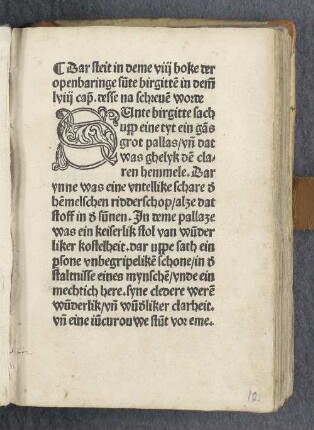 ¶ Dar steit in deme viij boke der
openbaringe sūte birgittē in dem̄
lviij cap̄. desse na screuē worde
SUnte birgitte sach
vpp eine tyt ein gās
grot pallas/vn̄ dat
was ghelyk dē cla-
ren hemmele. Dar
ynne was eine vntellike schare d̓
hēmelschen ridderschop/alze dat
stoff in d̓ sūnen. In deme pallaze
was ein keiserlik stol van wūder
liker kostelheit. dar vppe sath ein
ꝑsone vnbegripelikē schone/in d̓
staltnisse eines mynschē/vnde ein
mechtich here. syne cledere werē
wūderlik/vn̄ wūd̓liker clarheit.
vn̄ eine iūcurouwe stūt vor eme.
10.